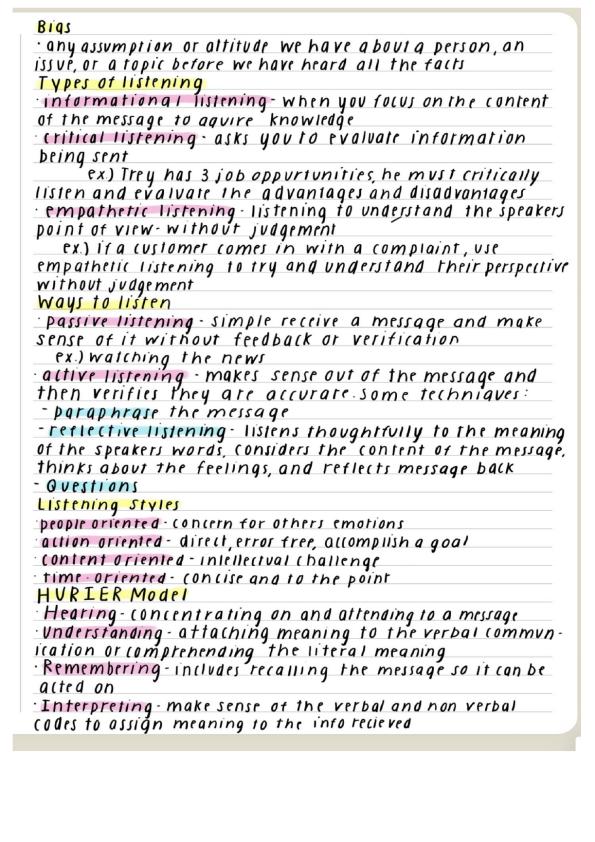 Bias
· any assumption or attitude we have about a person, an
issue, or a topic before we have heard all the facts
Types of listening
· informational listening - when you focus on the content
of the message to aquire knowledge
· critical listening - asks you to evaluate information
being sent
ex.) Trey has 3 job oppurtunities, he must critically
listen and evaluate the advantages and disadvantages
· empathetic listening - listening to understand the speakers
point of view - without judgement
ex.) if a customer comes in with a complaint, use
empathetic listening to try and understand their perspective
without judgement
Ways to listen
· passive listening - simple receive a message and make
sense of it without feedback or verification
ex.) watching the news
· active listening - makes sense out of the message and
then verifies they are accurate. Some techniques:
- paraphrase the message
- reflective listening - listens thoughtfully to the meaning
of the speakers words, considers the content of the message,
thinks about the feelings, and reflects message back
- Questions
Listening styles
· people oriented - concern for others emotions
· action oriented - direct, error free, accomplish a goal
· content oriented - intellectual challenge
· time-oriented - concise and to the point
HURIER Model
· Hearing - concentrating on and attending to a message
· Understanding - attaching meaning to the verbal commun-
ication or comprehending the literal meaning
· Remembering - includes recalling the message so it can be
acted on
· Interpreting - make sense of the verbal and non verbal
codes to assign meaning to the info recieved